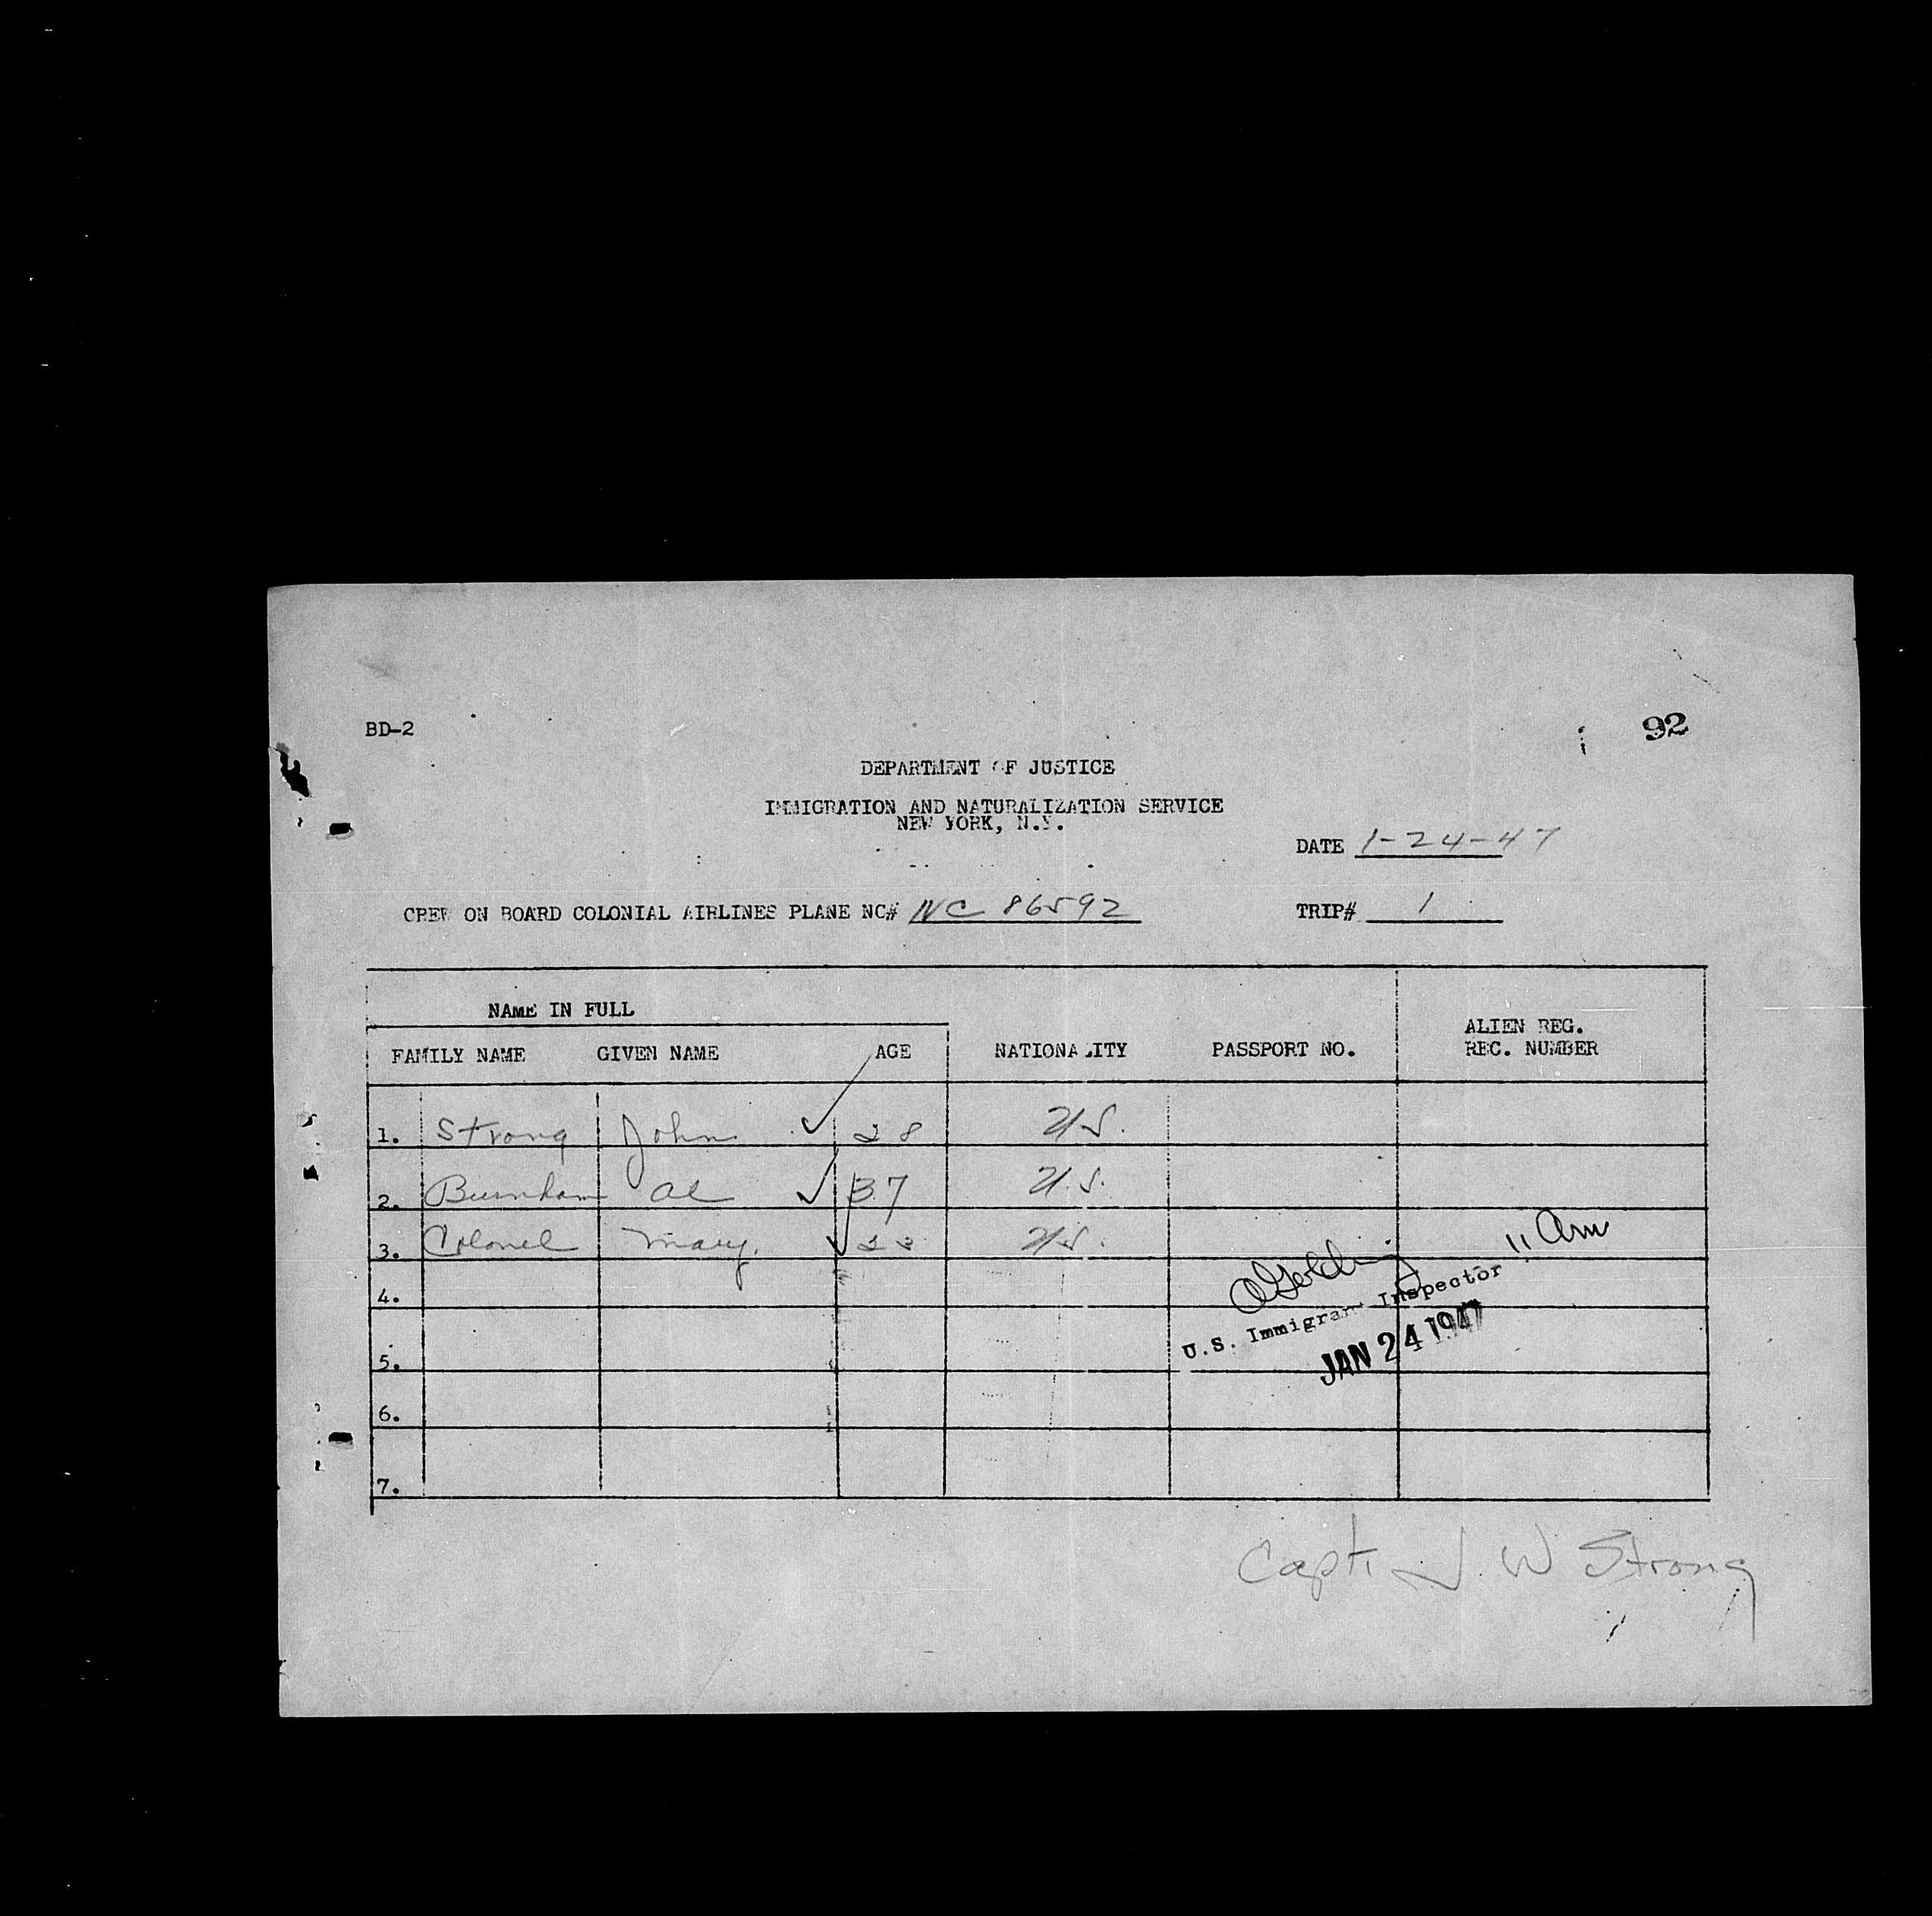 BD-2
92
DEPARTMENT OF JUSTICE
IMMIGRATION AND NATURALIZATION SERVICE
NEW YORK, N.Y.
DATE 1-24-47
CREW ON BOARD COLONIAL AIRLINES PLANE NC# NC 86592 TRIP# 1
NAME IN FULL
FAMILY NAME GIVEN NAME AGE NATIONALITY PASSPORT NO. ALIEN REG. REC. NUMBER
1. Strong John 28 U.S.
2. Burnham Al 37 U.S.
3. Colonel Mary. 23 U.S.
4.
5.
6.
7.
11 Am
U.S. Immigrant Inspector
JAN 24 1947
Capt. J. W Strong